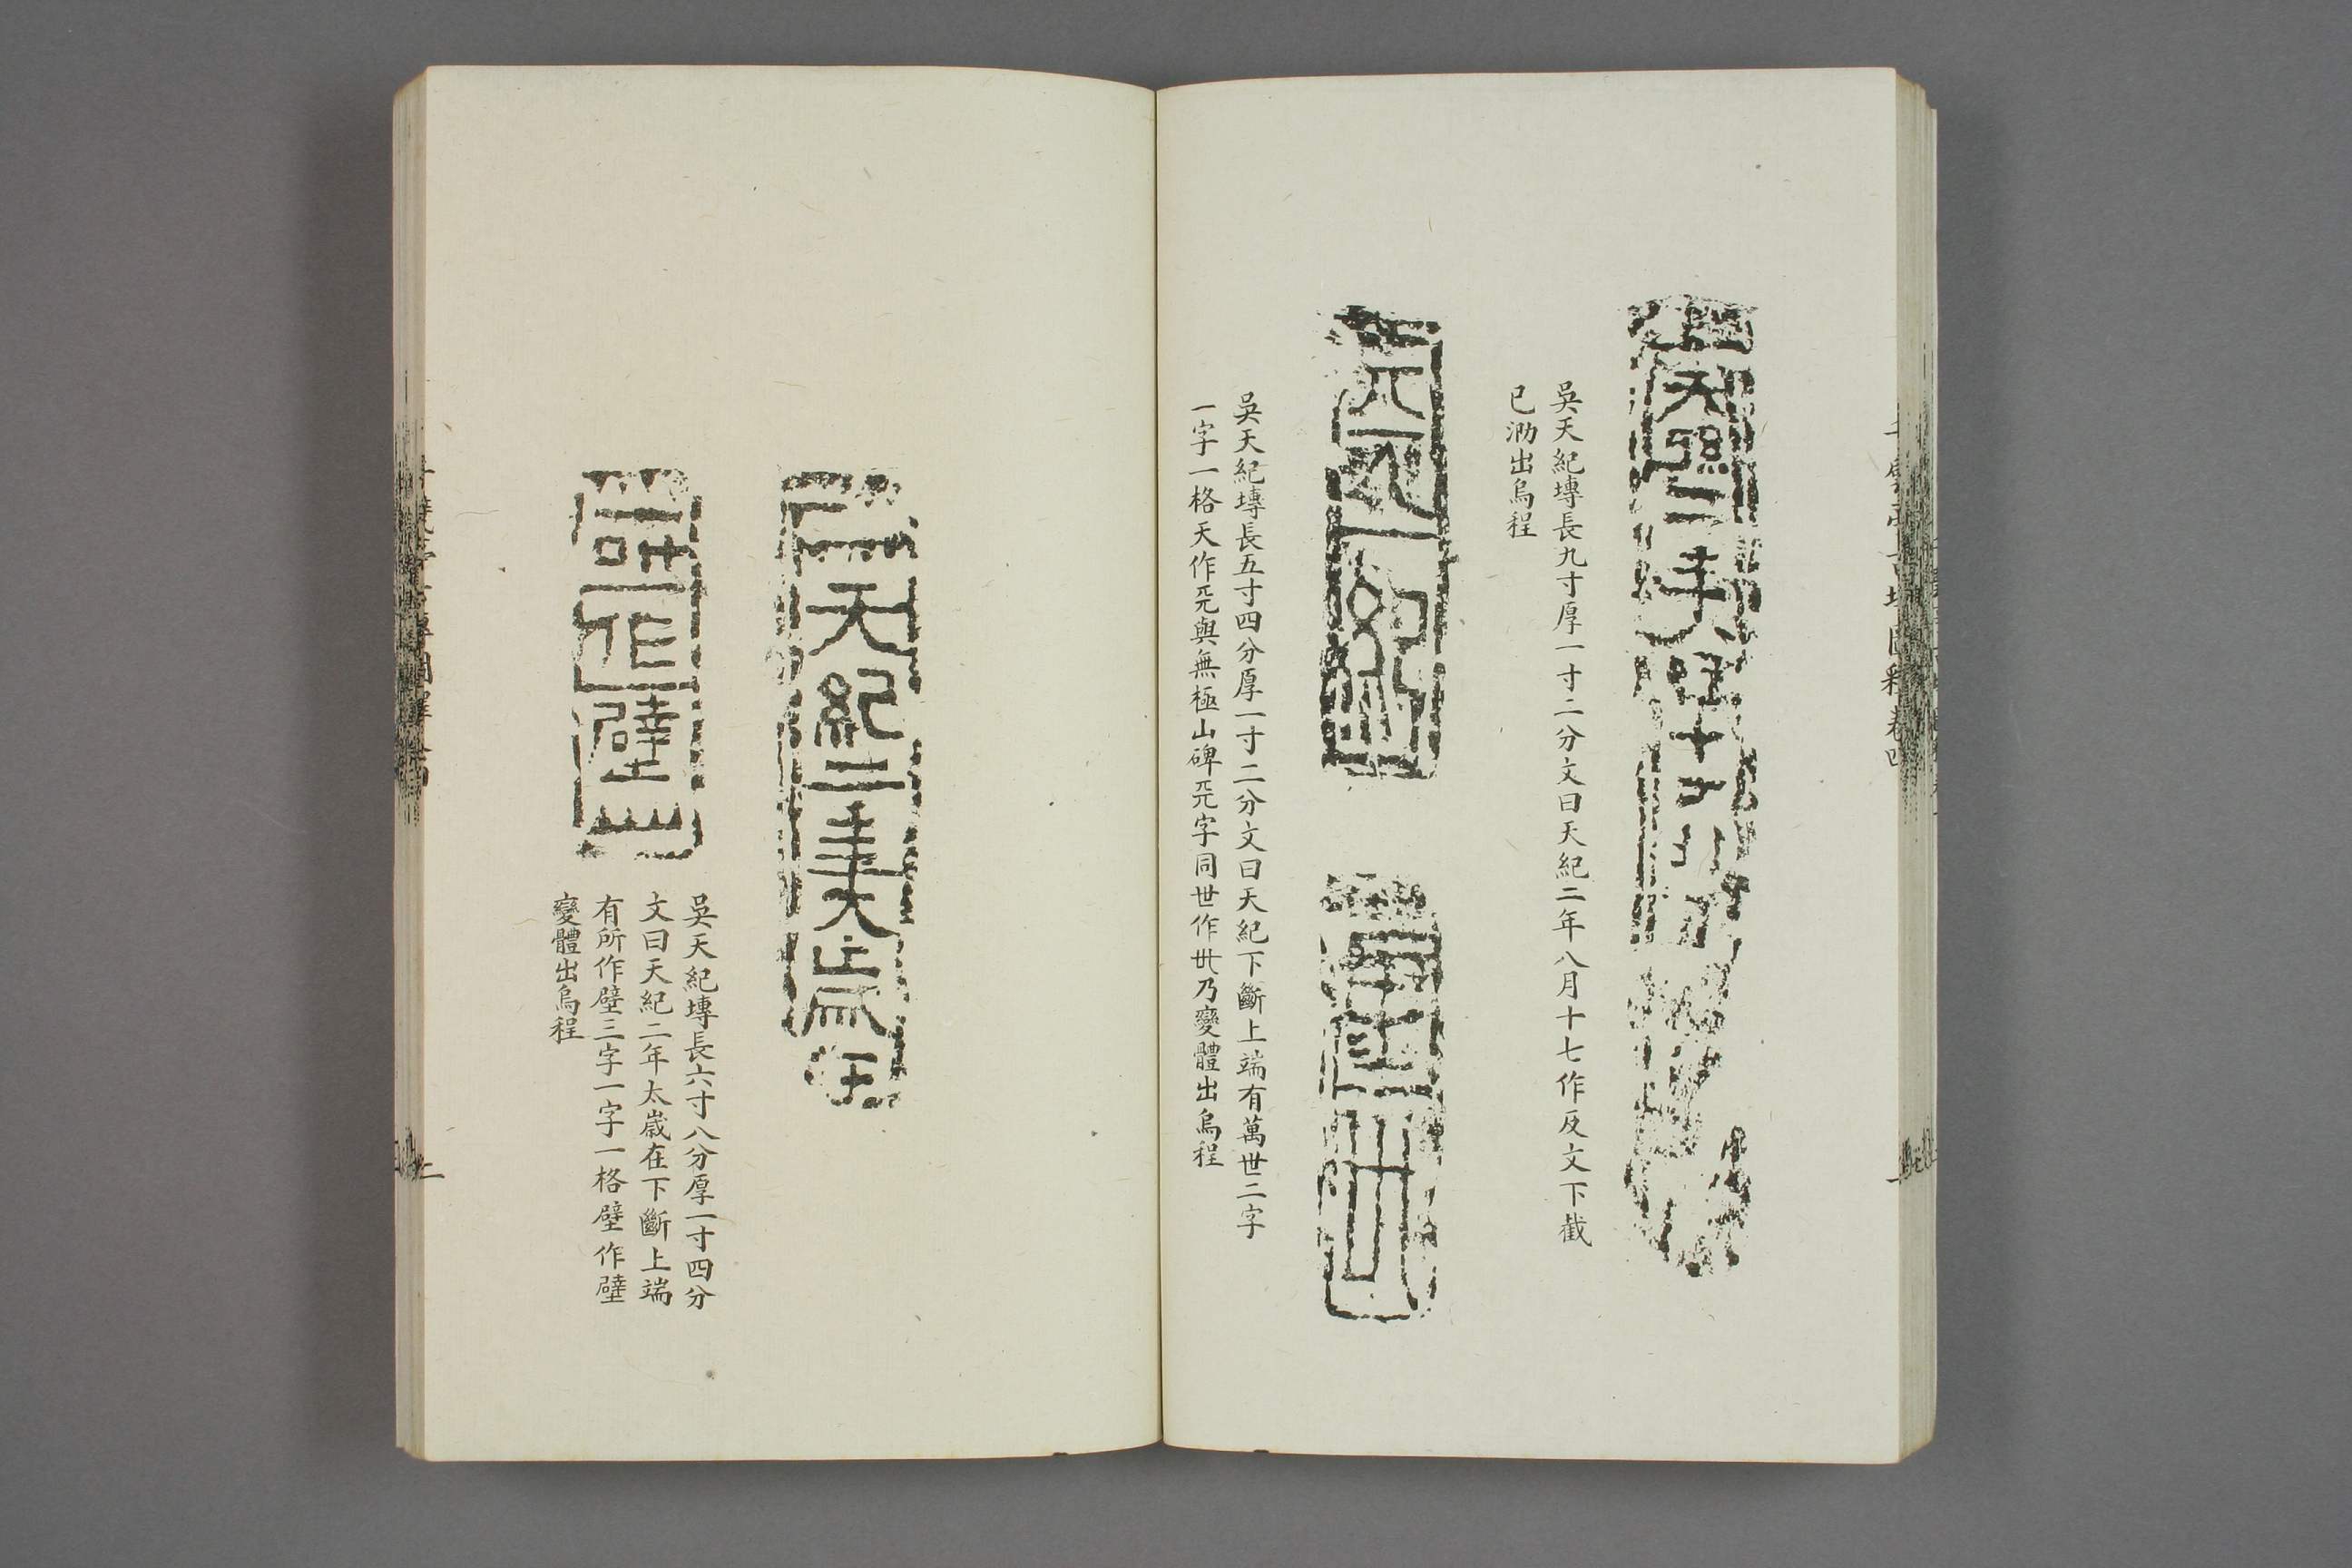 吳天紀塼長九寸厚一寸二分文曰天紀二年八月十七作反文下截
已泐出烏程
吳天紀塼長五寸四分厚一寸二分文曰天紀下斷上端有萬世二字
一字一格天作兲與無極山碑兲字同世作丗乃變體出烏程
天紀二年太歲在
所作壁
吳天紀塼長六寸八分厚一寸四分
文曰天紀二年太歲在下斷上端
有所作壁三字一字一格壁作壁
變體出烏程
二